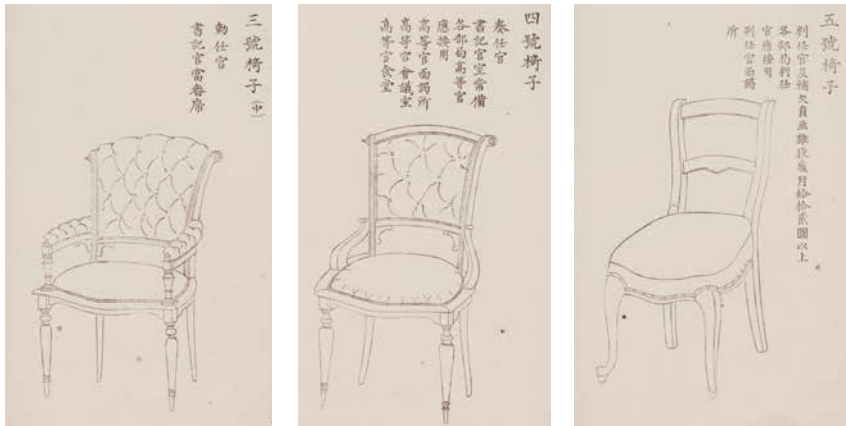 三號椅子(中)
勅任官
書記官當番席
四號椅子
奏任官
書記官室常備
各部局高等官
應接用
高等官面謁所
高等官會議室
高等官食堂
五號椅子
判任官及補欠員並雑段歳月給拾貳圓以上
各部局判任
官應接用
判任官面謁
所